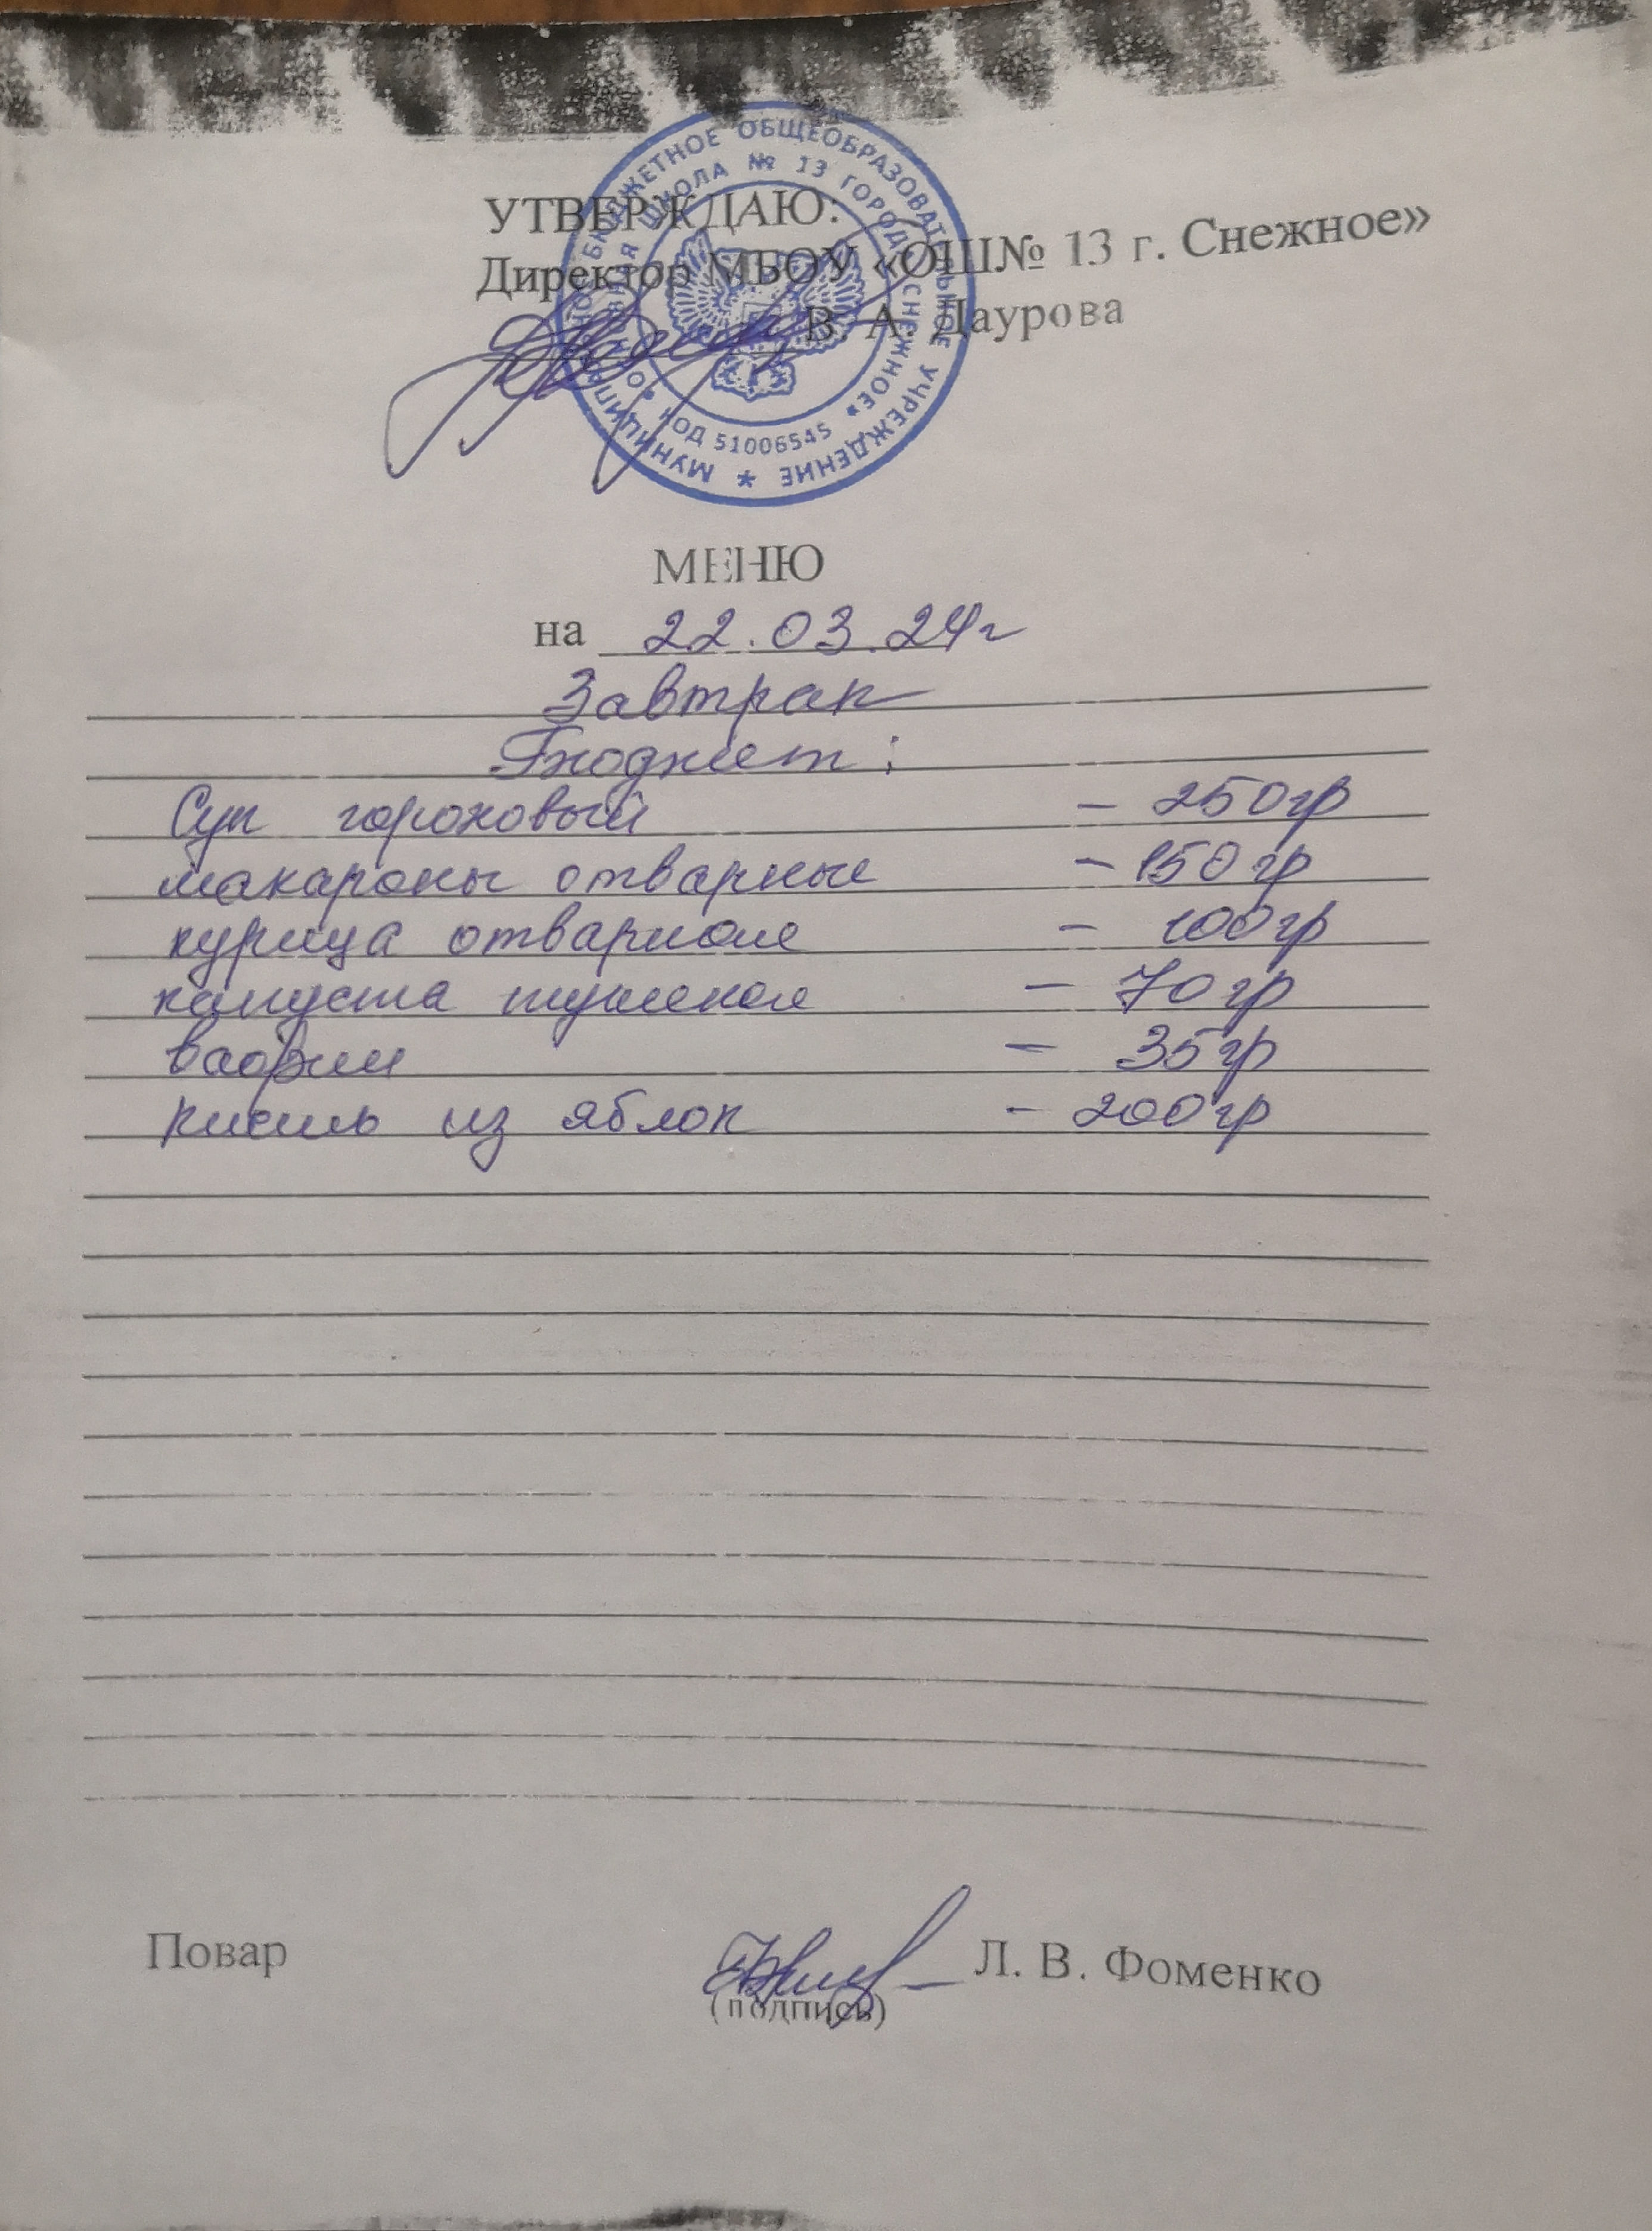 УТВЕРЖДАЮ:
Директор МБОУ «ОШ№ 13 г. Снежное»
В. А. Даурова
БЮДЖЕТНОЕ ОБЩЕОБРАЗОВАТЕЛЬНОЕ УЧРЕЖДЕНИЕ *
ШКОЛА № 13 ГОРОДА СНЕЖНОЕ»
КОД 51006545
МЕНЮ
на 22.03.24г
Завтрак
Бюджет:
Суп гороховый - 250гр
макароны отварные - 150гр
курица отварная - 100гр
капуста тушеная - 70гр
вафли - 35гр
кисель из яблок - 200гр
Повар Л. В. Фоменко
(подпись)